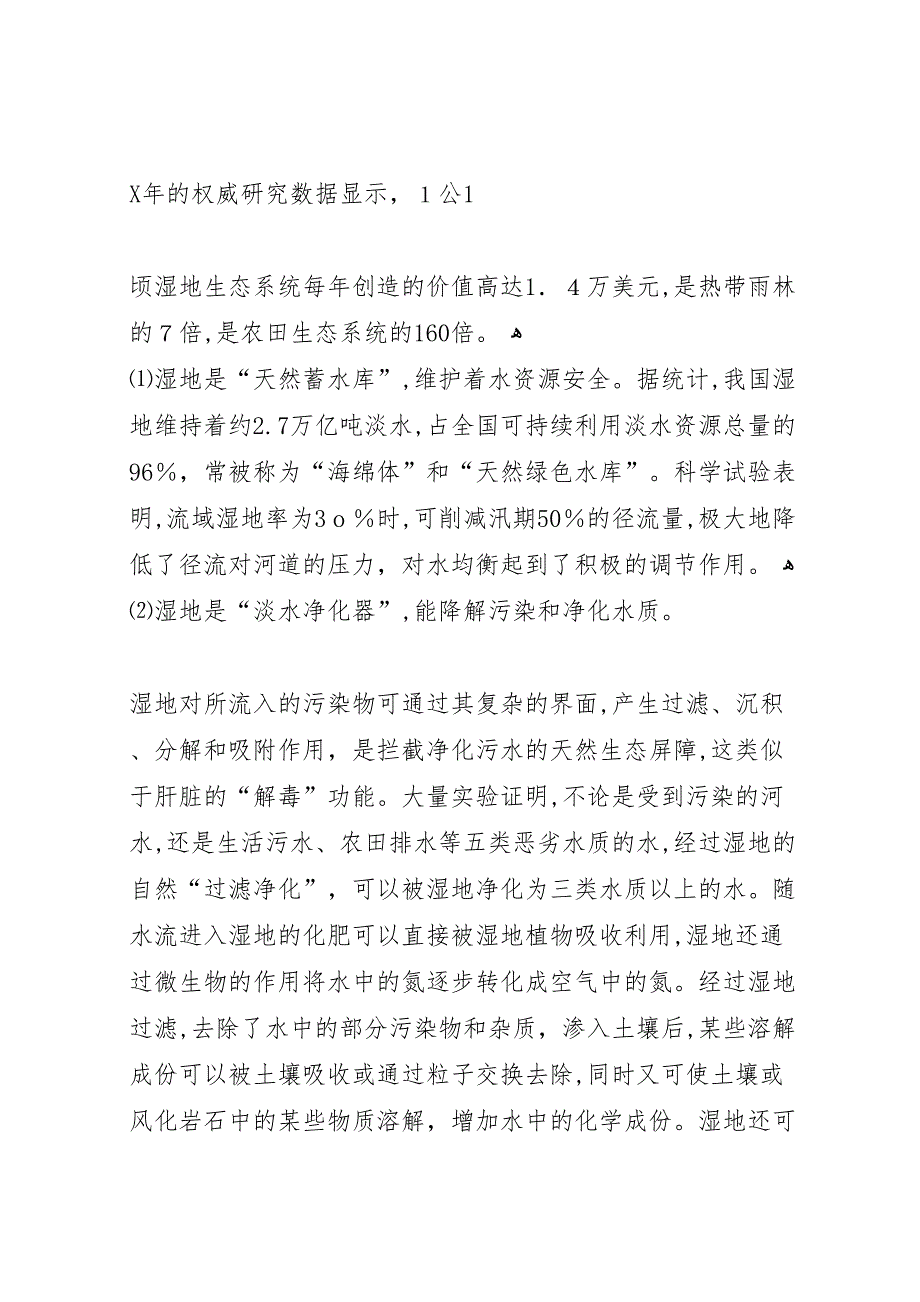 X年的权威研究数据显示，１公1
顷湿地生态系统每年创造的价值高达1．４万美元,是热带雨林
的７倍,是农田生态系统的160倍。 ﻫ
⑴湿地是“天然蓄水库”,维护着水资源安全。据统计,我国湿
地维持着约2.7万亿吨淡水,占全国可持续利用淡水资源总量的
96％，常被称为“海绵体”和“天然绿色水库”。科学试验表
明,流域湿地率为3ｏ％时,可削减汛期50％的径流量,极大地降
低了径流对河道的压力，对水均衡起到了积极的调节作用。 ﻫ
⑵湿地是“淡水净化器”,能降解污染和净化水质。
湿地对所流入的污染物可通过其复杂的界面,产生过滤、沉积
、分解和吸附作用，是拦截净化污水的天然生态屏障,这类似
于肝脏的“解毒”功能。大量实验证明,不论是受到污染的河
水,还是生活污水、农田排水等五类恶劣水质的水,经过湿地的
自然“过滤净化”，可以被湿地净化为三类水质以上的水。随
水流进入湿地的化肥可以直接被湿地植物吸收利用,湿地还通
过微生物的作用将水中的氮逐步转化成空气中的氮。经过湿地
过滤,去除了水中的部分污染物和杂质，渗入土壤后,某些溶解
成份可以被土壤吸收或通过粒子交换去除,同时又可使土壤或
风化岩石中的某些物质溶解，增加水中的化学成份。湿地还可